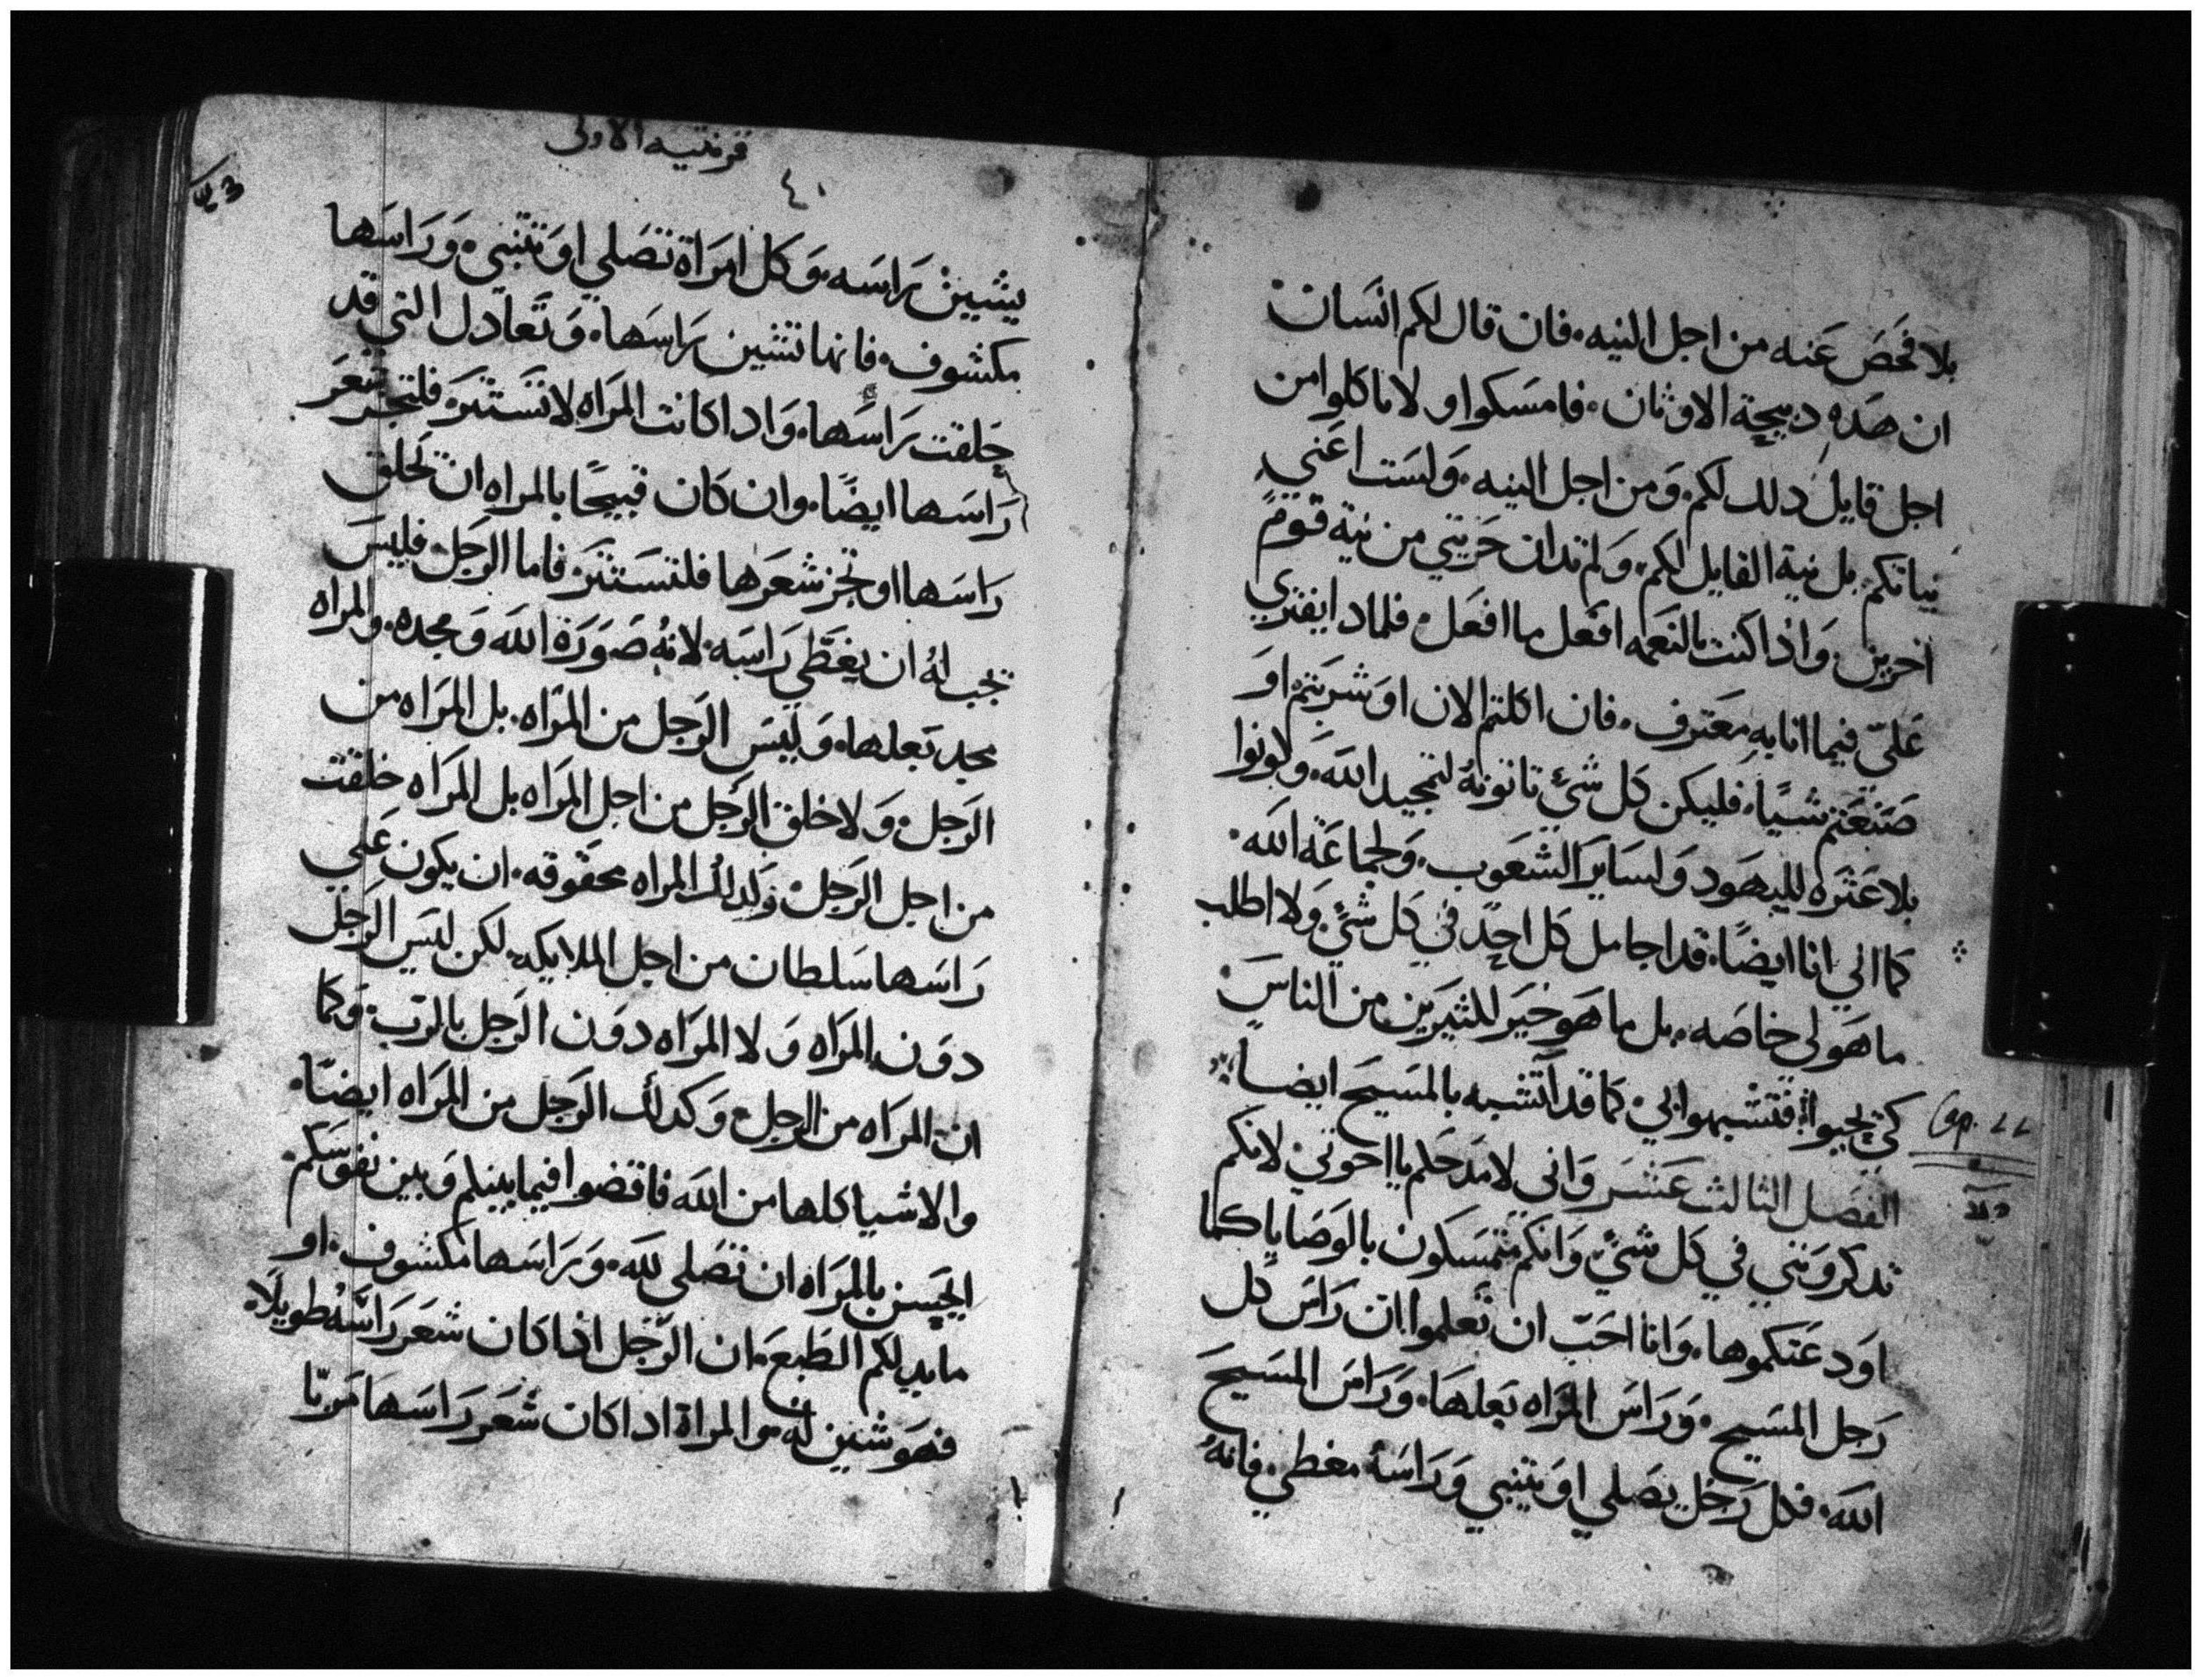 بلا فحص عنه من اجل النيه. فان قال لكم انسان
ان هده دبيحة الاوثان. فامسكوا ولا تاكلوا من
اجل قايل دلك لكم. ومن اجل النيه. ولست اعني
نياتكم بل نية القايل لكم. ولم تدان حريتي من نية قوم
اخرين. واذا كنت بالنعمه افعل ما افعل. فلمادا يفتري
علي فيما انا به معترف. فان اكلتم الان او شربتم او
صنعتم شيا. فليكن كل شي تاتونه لتمجيد الله. وكونوا
بلا عتره لليهود ولساير الشعوب. ولجماعة الله.
كما اني انا ايضا. قد اجامل كل احد في كل شي ولا اطلب
ما هو لي خاصه. بل ما هو خير للكثيرين من الناس
كي يحيوا. فتشبهوا بي. كما قد اتشبه بالمسيح ايضا
Cap. 11
الفصل الثالث عشر واني لامدحكم يا اخوتي لانكم
تدكرونني في كل شي. وانكم متمسكون بالوصايا كما
اودعتكموها. وانا احب ان تعلموا ان راس كل
رجل المسيح. وراس المراه بعلها. وراس المسيح
الله. فكل رجل يصلي او يتنبي وراسه مغطي. فانه
قرنتيه الاولى
٤٠
يشين براسه. وكل امراة تصلي او تتنبي. وراسها
مكشوف. فانها تشين براسها. وتعادل التي قد
حلقت براسها. واداكانت المراه لا تستتر. فلتجز شعر
راسها ايضا. وان كان قبيحا بالمراه ان تحلق
راسها او تجز شعرها فلتستتر. فاما الرجل. فليس
يجب له ان يغطي راسه. لانه صورة الله ومجده. والمراه
مجد بعلها. وليس الرجل من المراه. بل المراه من
الرجل. ولا خلق الرجل من اجل المراه بل المراه خلقت
من اجل الرجل. ولدلك المراه محقوقه. ان يكون علي
راسها سلطان من اجل الملايكه. لكن ليس الرجل
دون المراه ولا المراه دون الرجل بالرب. وكما
ان المراه من الرجل. وكدلك الرجل من المراه ايضا.
والاشيا كلها من الله فاقضوا فيما بينكم وبين نفوسكم.
ايحسن بالمراه ان تصلي لله. وراسها مكشوف. او
ما يدلكم الطبع. ان الرجل اذا كان شعر راسه طويلا.
فهو شين له. والمراة ادا كان شعر راسها مربا